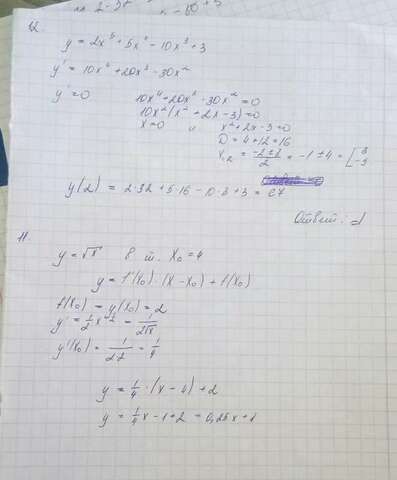 12.
y = 2x⁵ + 5x⁴ - 10x³ + 3
y' = 10x⁴ + 20x³ - 30x²
y' = 0 10x⁴ + 20x³ - 30x² = 0
10x²(x² + 2x - 3) = 0
x = 0 и x² + 2x - 3 = 0
D = 4 + 12 = 16
x₁,₂ = = -1 ± 4 = [3 -5
y(2) = 2·32 + 5·16 - 10·8 + 3 = 67
Ответ:
11.
y = √x в т. x₀ = 4
y = f'(x₀)·(x - x₀) + f(x₀)
f(x₀) = y(x₀) = 2
y' = 1/2 x^-1/2 = 1/(2√x)
y'(x₀) = 1/(2·2) = 1/4
y = 1/4·(x - 4) + 2
y = 1/4x - 1 + 2 = 0,25x + 1